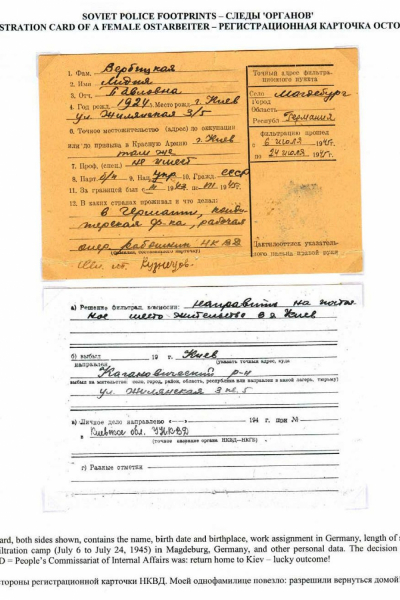 SOVIET POLICE FOOTPRINTS – СЛЕДЫ 'ОРГАНОВ'
STRATION CARD OF A FEMALE OSTARBEITER – РЕГИСТРАЦИОННАЯ КАРТОЧКА ОСТО
1. Фам. Вербицкая
2. Имя Лидия
3. Отч. Павловна
4. Год рожд. 1924 Место рожд. г. Киев
ул. Жилянская 3/5
6. Точное местожительство (адрес) до оккупации
или до призыва в Красную Армию г. Киев
там же
7. Проф. (спец.) не имеет
8. Парт. б/п 9. Нац. укр 10. Гражд. ссср
11. За границей был с
12. В каких странах проживал и что делал:
в Германии, конди-
терская ф-ка, рабочая
опер. работник НКВД
Кузнецов
Точный адрес фильтра-
ционного пункта
Село Магдебург
Город
Область
Республ Германия
фильтрацию прошел
с 6 июля 1945г.
по 24 июля 1945г.
Дактилоттиск указатель-
ного пальца правой руки
а) Решение фильтрац. комиссии: направить на постоян-
ное место жительство в г. Киев
б) выбыл 19 г. Киев
направлен (указать точный адрес, куда
Кагановический р-н
выбыл на жительство: село, город, район, область, республика или направлен в какой лагерь, тюрьму)
ул. Жилянская 3
в) Личное дело направлено «——» 194 г. при №
в Киевское обл. УНКВД
(точное название органа НКВД—НКГБ)
г) Разные отметки
ard, both sides shown, contains the name, birth date and birthplace, work assignment in Germany, length of s
iltration camp (July 6 to July 24, 1945) in Magdeburg, Germany, and other personal data. The decision
D = People's Commissariat of Internal Affairs was: return home to Kiev – lucky outcome!
тороны регистрационной карточки НКВД. Моей однофамилице повезло: разрешили вернуться домой!